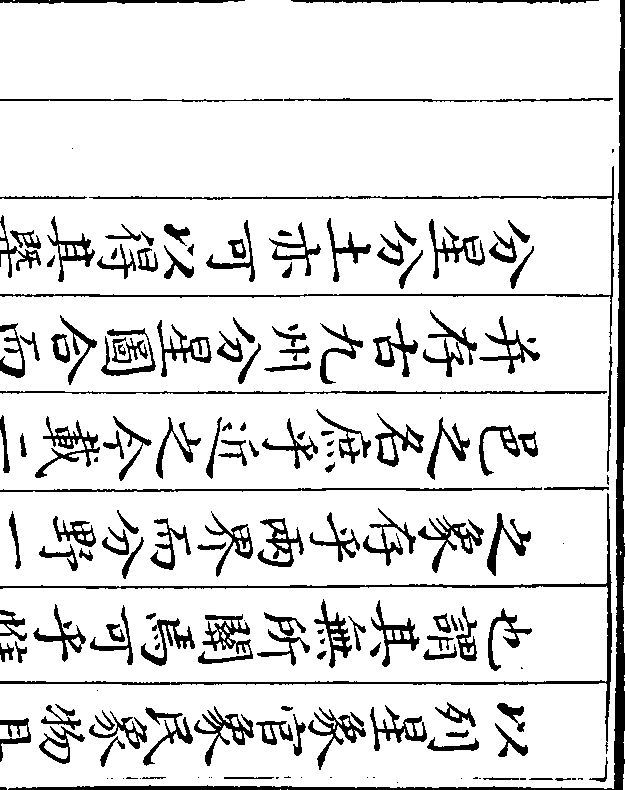 以列星象官象民象物
也謂其無所關焉可乎惟
之象存乎兩界而分野一
邑之名庶乎近之今載二
并存古九州分星圖合而
分星分土亦可以得其槩